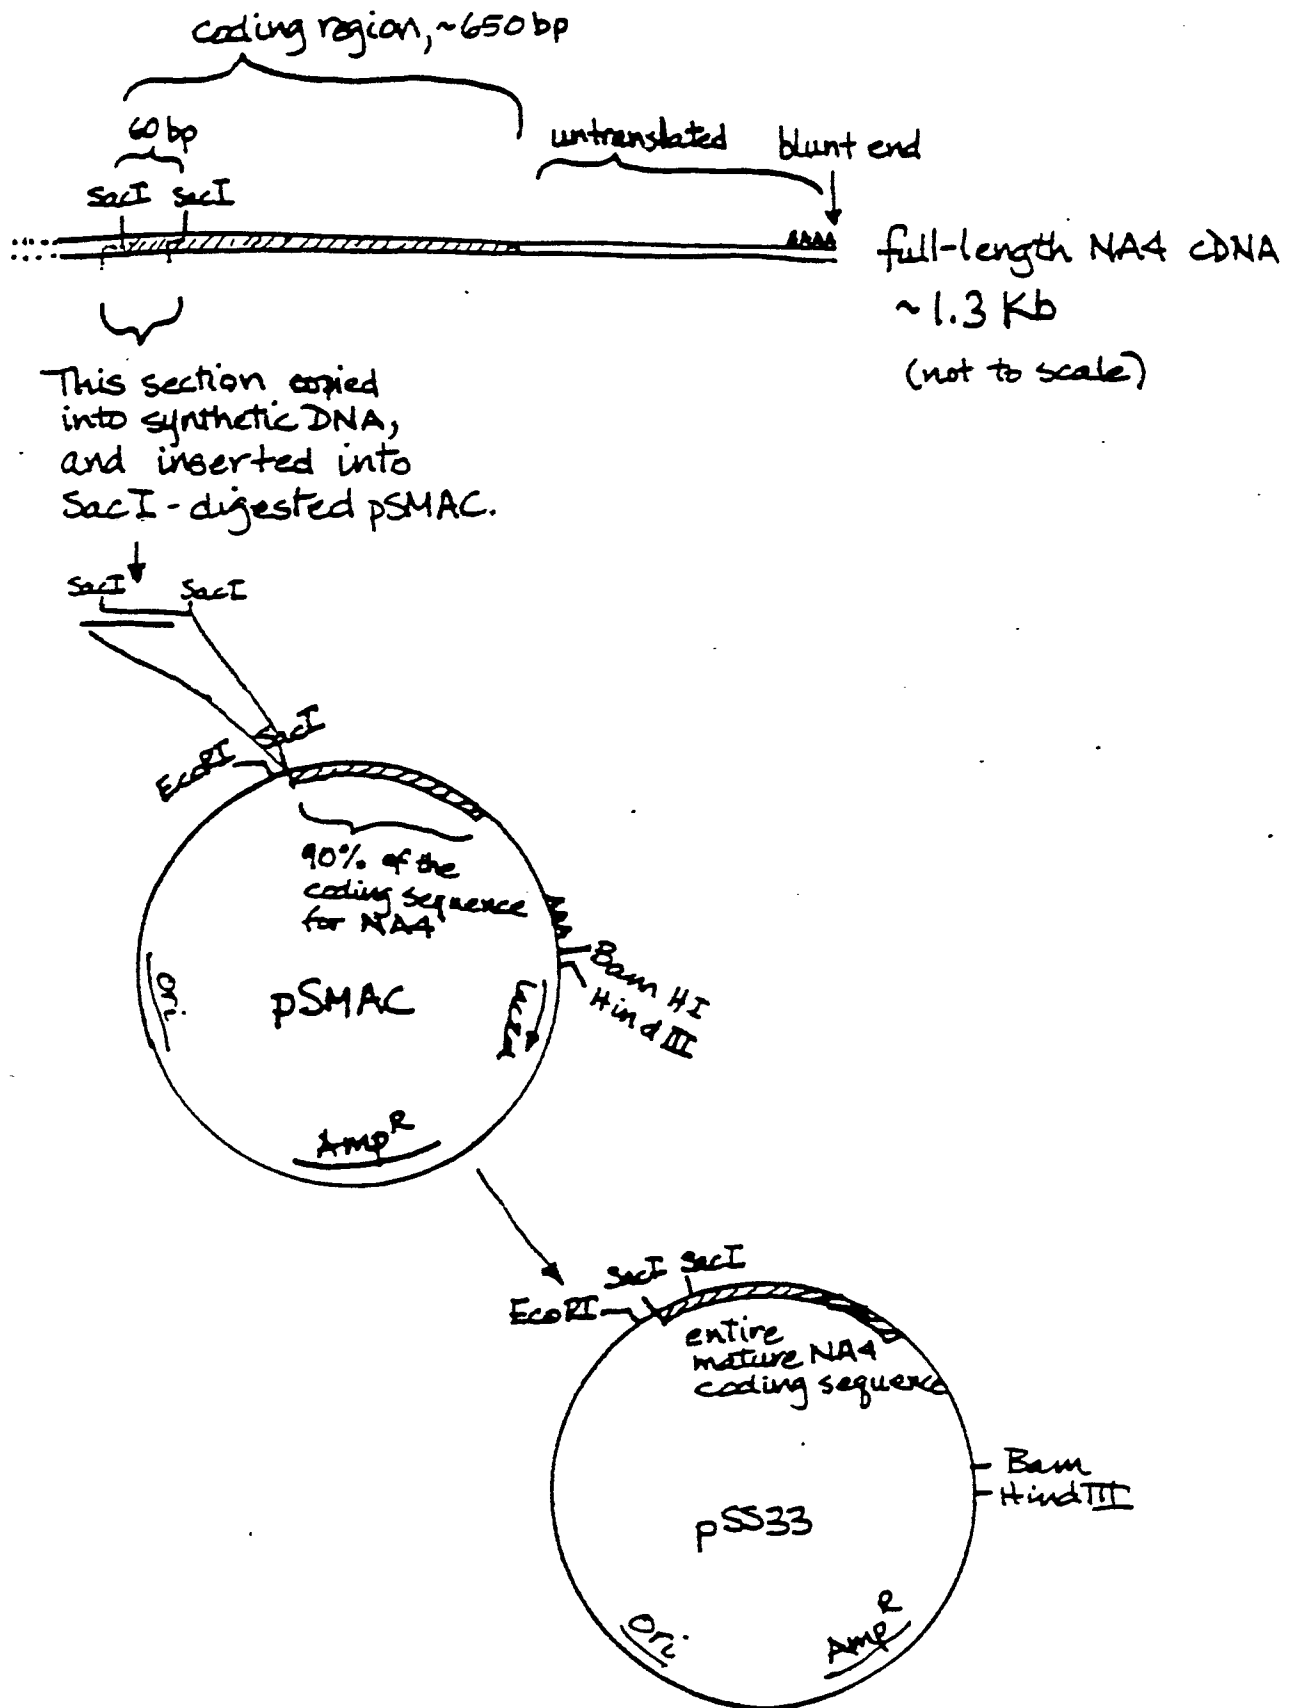 coding region, ~650 bp
60 bp
untranslated
blunt end
SacI SacI
AAAA
full-length NA4 cDNA
~1.3 Kb
(not to scale)
This section copied
into synthetic DNA,
and inserted into
SacI-digested pSMAC.
SacI SacI
EcoRI SacI
90% of the
coding sequence
for NA4
AAA
Bam HI
Hind III
Ori
pSMAC
Amp R
SacI SacI
EcoRI
entire
mature NA4
coding sequence
Bam
Hind III
pSS33
Ori
Amp R